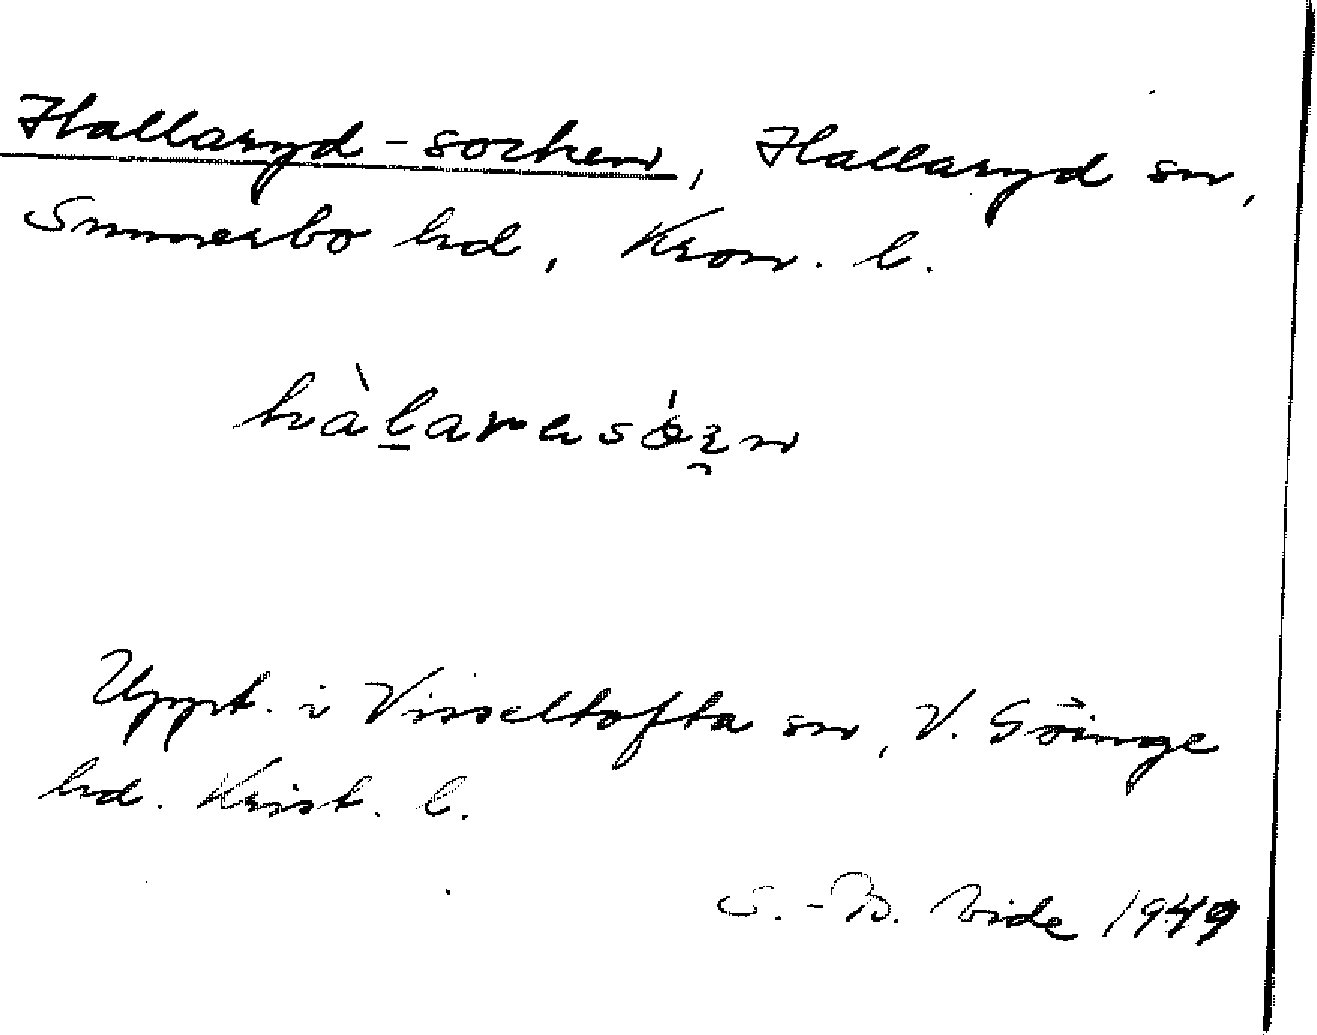 Hallaryd-socken, Hallaryd sn,
Sunnerbo hd, Kron. l.
Uppt. i Visseltofta sn, V. Göinge
hd. Krist. l.
S.-B. Vide 1949